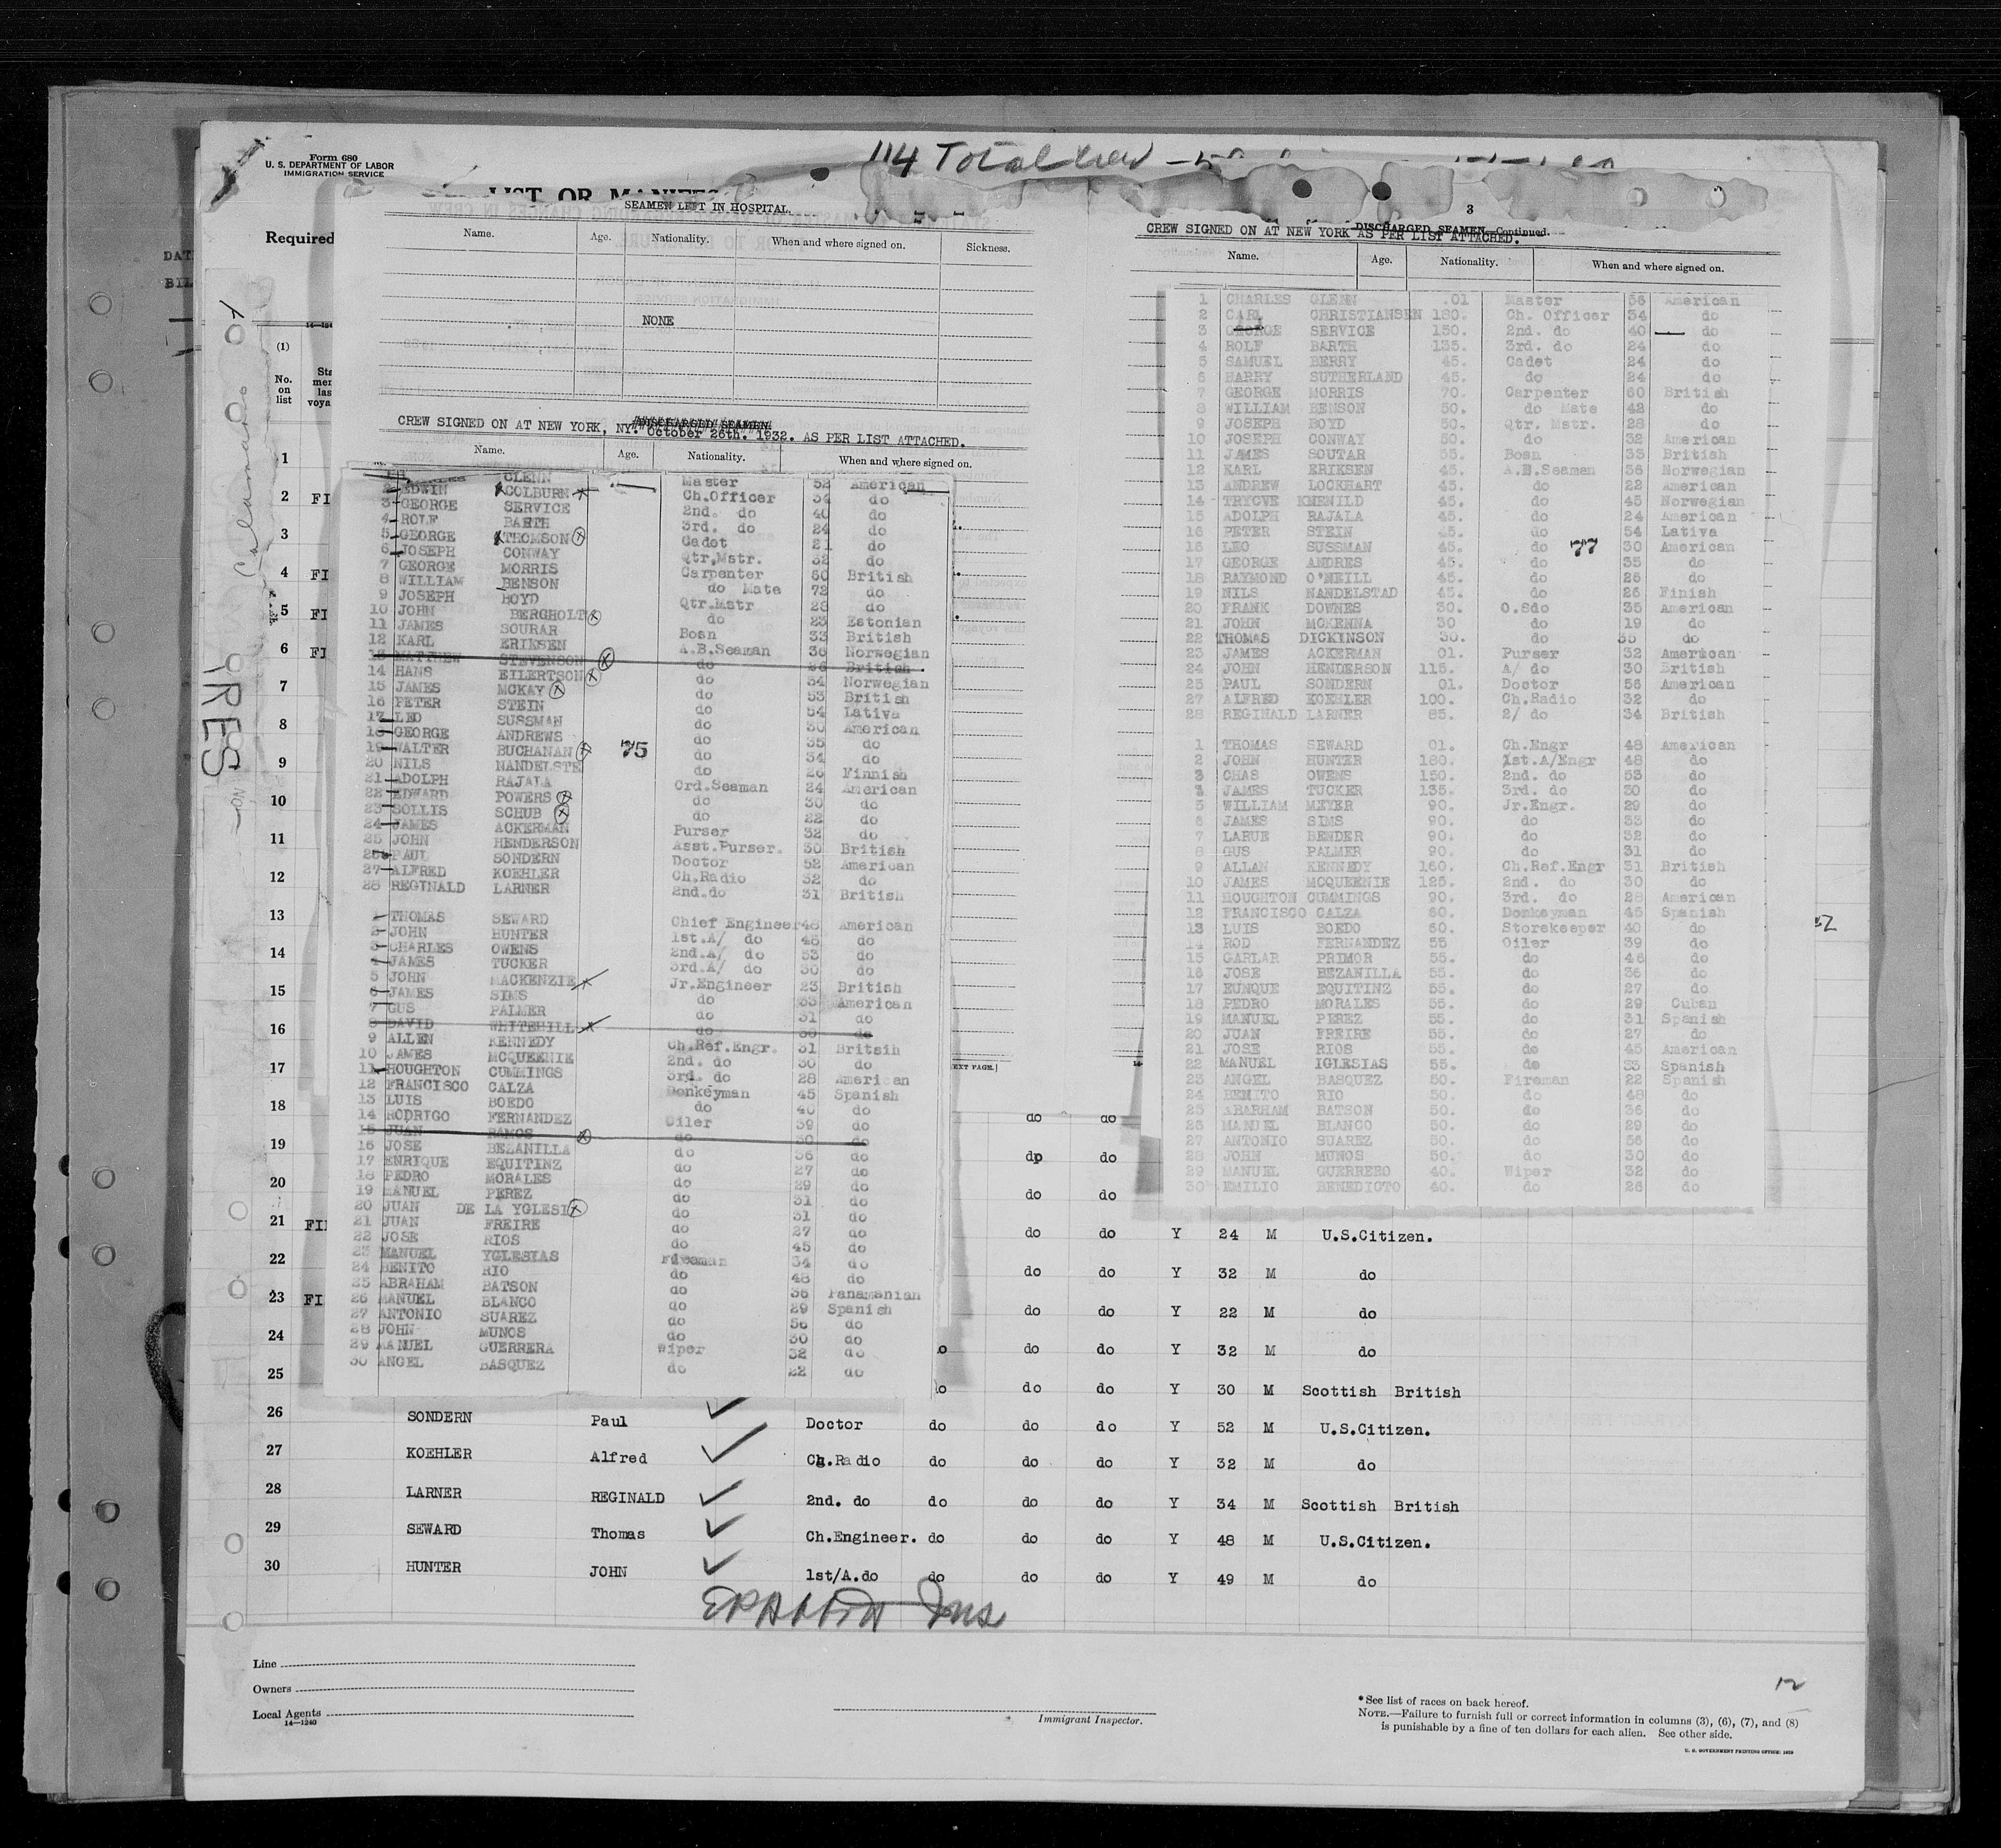 114 Total crew
Form 680
U. S. DEPARTMENT OF LABOR
IMMIGRATION SERVICE
LIST OR MANIFES
Required
SEAMEN LEFT IN HOSPITAL.
Name. Age. Nationality. When and where signed on. Sickness.
NONE
CREW SIGNED ON AT NEW YORK, NY. October 26th. 1932. AS PER LIST ATTACHED.
DISCHARGED SEAMEN
Name. Age. Nationality. When and where signed on.
GLENN Master 52 American
2 EDWIN COLBURN Ch.Officer 34 do
3 GEORGE SERVICE 2nd. do 40 do
4 ROLF BARTH 3rd. do 24 do
5 GEORGE THOMSON Cadet 21 do
6 JOSEPH CONWAY Qtr.Mstr. 32 do
7 GEORGE MORRIS Carpenter 60 British
8 WILLIAM BENSON do Mate 72 do
9 JOSEPH BOYD Qtr.Mstr 28 do
10 JOHN BERGHOLT do 23 Estonian
11 JAMES SOURAR Bosn 33 British
12 KARL ERIKSEN A.B.Seaman 36 Norwegian
13 MATTHEW STEVENSON do 26 British
14 HANS EILERTSON do 34 Norwegian
15 JAMES MCKAY do 53 British
16 PETER STEIN do 54 Lativa
17 LEO SUSSMAN do 30 American
18 GEORGE ANDREWS do 35 do
19 WALTER BUCHANAN 75 do 34 do
20 NILS NANDELSTE do 26 Finnish
21 ADOLPH RAJALA Ord.Seaman 24 American
22 EDWARD POWERS do 30 do
23 SOLLIS SCHUB do 22 do
24 JAMES ACKERMAN Purser 32 do
25 JOHN HENDERSON Asst.Purser. 30 British
26 PAUL SONDERN Doctor 52 American
27 ALFRED KOEHLER Ch.Radio 32 do
28 REGINALD LARNER 2nd.do 31 British
THOMAS SEWARD Chief Engineer 48 American
2 JOHN HUNTER 1st.A/ do 48 do
3 CHARLES OWENS 2nd.A/ do 53 do
4 JAMES TUCKER 3rd.A/ do 30 do
5 JOHN MACKENZIE Jr.Engineer 23 British
6 JAMES SIMS do 33 American
7 GUS PALMER do 31 do
8 DAVID WHITEHILL do 30 do
9 ALLEN KENNEDY Ch.Ref.Engr. 31 Britsih
10 JAMES MCQUEENIE 2nd. do 30 do
11 HOUGHTON CUMMINGS 3rd. do 28 American
12 FRANCISCO CALZA Donkeyman 45 Spanish
13 LUIS BOEDO do 40 do
14 RODRIGO FERNANDEZ Oiler 39 do
15 JUAN RAMOS do 30 do
16 JOSE BEZANILLA do 36 do
17 ENRIQUE EQUITINZ do 27 do
18 PEDRO MORALES do 29 do
19 MANUEL PEREZ do 31 do
20 JUAN DE LA YGLESI do 31 do
21 JUAN FREIRE do 27 do
22 JOSE RIOS do 45 do
23 MANUEL YGLESIAS Fireman 34 do
24 BENITO RIO do 48 do
25 ABRAHAM BATSON do 36 Panamanian
26 MANUEL BLANCO do 29 Spanish
27 ANTONIO SUAREZ do 56 do
28 JOHN MUNOS do 30 do
29 MANUEL GUERRERA Wiper 32 do
30 ANGEL BASQUEZ do 22 do
3
DISCHARGED SEAMEN—Continued.
CREW SIGNED ON AT NEW YORK AS PER LIST ATTACHED.
Name. Age. Nationality. When and where signed on.
1 CHARLES GLENN .01 Master 56 American
2 CARL CHRISTIANSEN 180. Ch. Officer 34 do
3 GEORGE SERVICE 150. 2nd. do 40 do
4 ROLF BARTH 135. 3rd. do 24 do
5 SAMUEL BERRY 45. Cadet 24 do
6 HARRY SUTHERLAND 45. do 24 do
7 GEORGE MORRIS 70. Carpenter 60 British
8 WILLIAM BENSON 50. do Mate 42 do
9 JOSEPH BOYD 50. Qtr. Mstr. 28 do
10 JOSEPH CONWAY 50. do 32 American
11 JAMES SOUTAR 55. Bosn 33 British
12 KARL ERIKSEN 45. A.B.Seaman 36 Norwegian
13 ANDREW LOCKHART 45. do 22 American
14 TRYGVE KMENILD 45. do 45 Norwegian
15 ADOLPH RAJALA 45. do 24 American
16 PETER STEIN 45. do 54 Lativa
16 LEO SUSSMAN 45. do 77 30 American
17 GEORGE ANDRES 45. do 35 do
18 RAYMOND O'NEILL 45. do 25 do
19 NILS NANDELSTAD 45. do 26 Finish
20 FRANK DOWNES 30. O.Sdo 35 American
21 JOHN MCKENNA 30 do 19 do
22 THOMAS DICKINSON 30. do 35 do
23 JAMES ACKERMAN 01. Purser 32 American
24 JOHN HENDERSON 115. A/ do 30 British
25 PAUL SONDERN 01. Doctor 56 American
27 ALFRED KOEHLER 100. Ch.Radio 32 do
28 REGINALD LARNER 85. 2/ do 34 British
1 THOMAS SEWARD 01. Ch.Engr 48 American
2 JOHN HUNTER 180. 1st.A/Engr 48 do
3 CHAS OWENS 150. 2nd. do 53 do
JAMES TUCKER 135. 3rd. do 30 do
5 WILLIAM MEYER 90. Jr.Engr. 29 do
6 JAMES SIMS 90. do 33 do
7 LARUE BENDER 90. do 32 do
8 GUS PALMER 90. do 31 do
9 ALLAN KENNEDY 160. Ch.Ref.Engr 31 British
10 JAMES MCQUEENIE 125. 2nd. do 30 do
11 HOUGHTON CUMMINGS 90. 3rd. do 28 American
12 FRANCISCO CALZA 60. Donkeyman 45 Spanish
13 LUIS BOEDO 60. Storekeeper 40 do
14 ROD FERNANDEZ 55 Oiler 39 do
15 GARLAR PRIMOR 55. do 46 do
16 JOSE BEZANILLA 55. do 36 do
17 EUNQUE EQUITINZ 55. do 27 do
18 PEDRO MORALES 55. do 29 Cuban
19 MANUEL PEREZ 55. do 31 Spanish
20 JUAN FREIRE 55. do 27 do
21 JOSE RIOS 55. do 45 American
22 MANUEL IGLESIAS 55. do 33 Spanish
23 ANGEL BASQUEZ 50. Fireman 22 Spanish
24 BENITO RIO 50. do 48 do
25 ABARHAM BATSON 50. do 36 do
26 MANUEL BLANCO 50. do 29 do
27 ANTONIO SUAREZ 50. do 56 do
28 JOHN MUNOS 50. do 30 do
29 MANUEL GUERRERO 40. Wiper 32 do
30 EMILIO BENEDICTO 40. do 26 do
(1)
No. on list
1
2 FI
3
4 FI
5 FI
6 FI
7
8
9
10
11
12
13
14
15
16
17
18 do do
19 dp do
20 do do
21 FI do do Y 24 M U.S.Citizen.
22 do do Y 32 M do
23 FI do do Y 22 M do
24 do do Y 32 M do
25 do do Y 30 M Scottish British
26 SONDERN Paul Doctor do do do Y 52 M U.S.Citizen.
27 KOEHLER Alfred Ch.Radio do do do Y 32 M do
28 LARNER REGINALD 2nd. do do do do Y 34 M Scottish British
29 SEWARD Thomas Ch.Engineer. do do do Y 48 M U.S.Citizen.
30 HUNTER JOHN 1st/A.do do do do Y 49 M do
Line
Owners
Local Agents
14—1240
Immigrant Inspector.
12
* See list of races on back hereof.
NOTE.—Failure to furnish full or correct information in columns (3), (6), (7), and (8)
is punishable by a fine of ten dollars for each alien. See other side.
U. S. GOVERNMENT PRINTING OFFICE: 1929